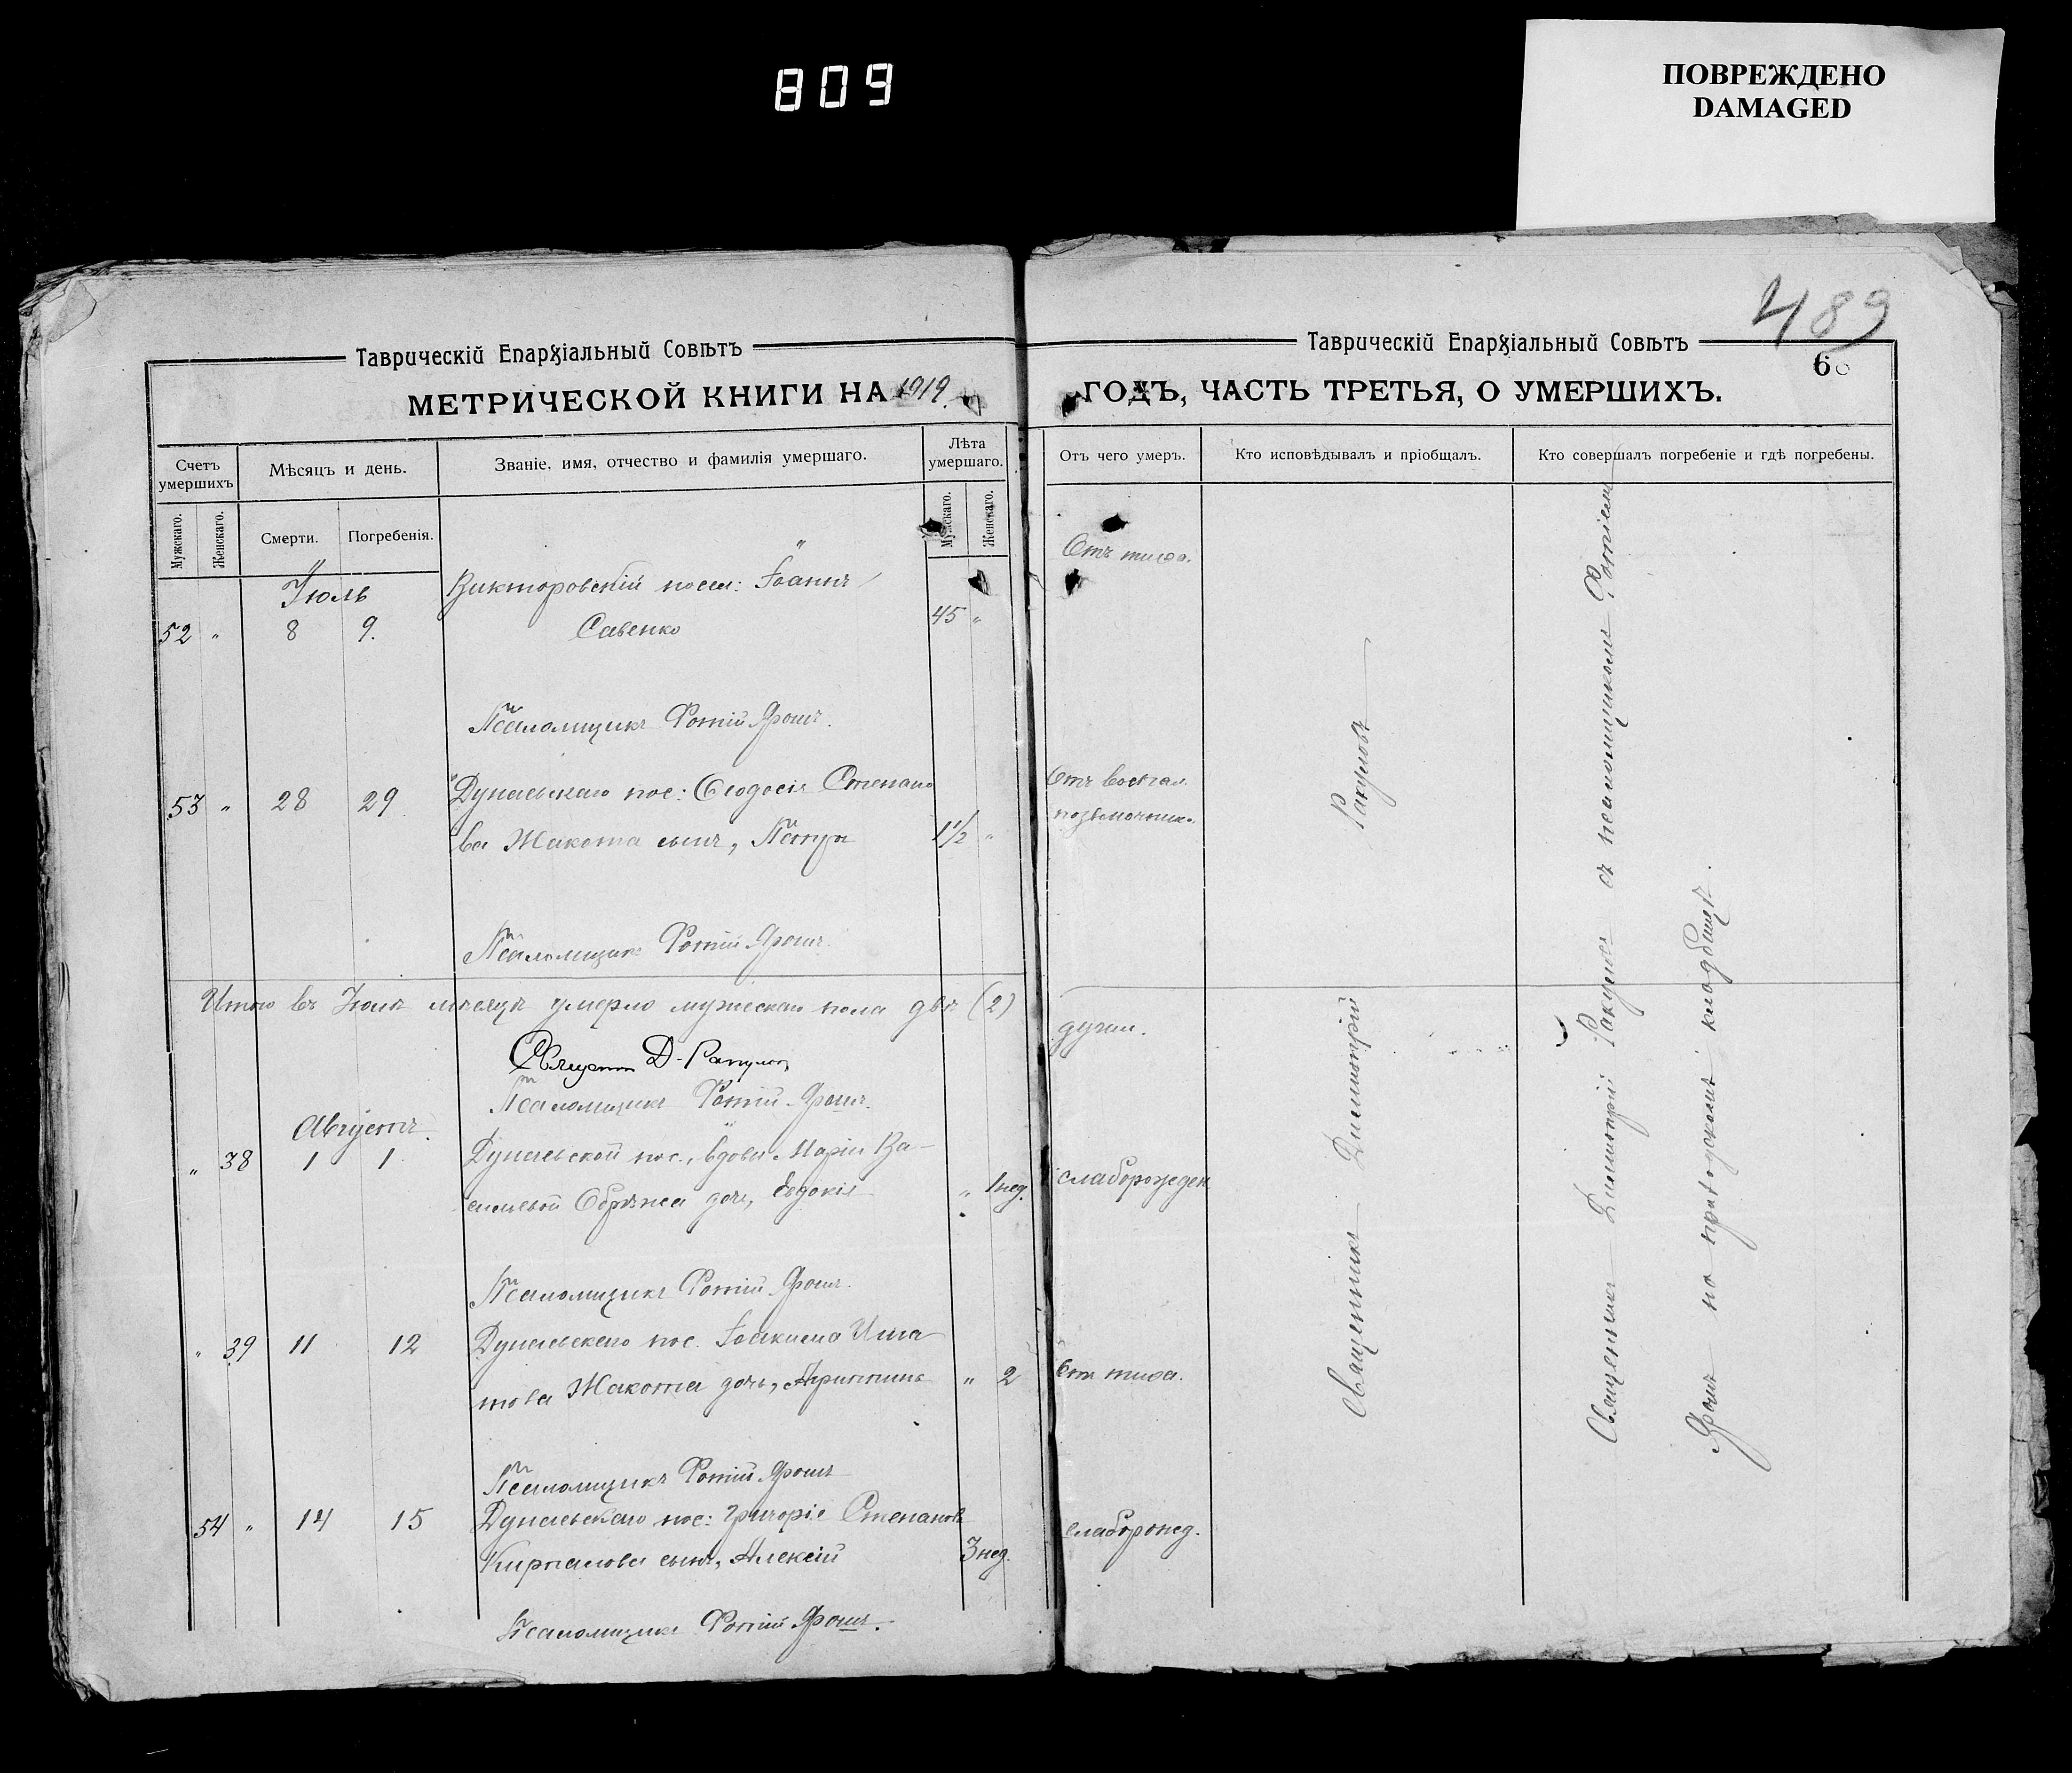 809
ПОВРЕЖДЕНО
DAMAGED
489
Таврическій Епархіальный Совѣтъ
МЕТРИЧЕСКОЙ КНИГИ НА 1919
Таврическій Епархіальный Совѣтъ
60
ГОДЪ, ЧАСТЬ ТРЕТЬЯ, О УМЕРШИХЪ.
Счетъ умершихъ
Мѣсяцъ и день.
Званіе, имя, отчество и фамилія умершаго.
Лѣта умершаго.
Отъ чего умеръ.
Кто исповѣдывалъ и пріобщалъ.
Кто совершалъ погребеніе и гдѣ погребены.
Мужскаго.
Женскаго.
Смерти.
Погребенія.
Мужскаго.
Женскаго.
Іюль
Викторовскій посел: Іоаннъ
52 " 8 9. Савенко 45 "
Отъ тифа.
Псаломщикъ Фотій Ярошъ.
53 " 28 29 Дунаевскаго пос: Ѳеодосія Степано
ва Жакота сынъ, Петръ 1 1/2 "
Отъ воспал.
Псаломщикъ Фотій Ярошъ.
Итого въ Іюлѣ мѣсяцѣ умерло мужескаго пола двѣ (2)
души.
Священ Д. Ракулов
Псаломщикъ Фотій Ярошъ.
Августъ.
" 38 1 1 Дунаевской пос., вдовы Маріи Ва-
сильевой дочь, Евдокія " 1 нед.
слаборожден
Псаломщикъ Фотій Ярошъ.
" 39 11 12 Дунаевскаго пос. Іоакима Игна
това Жакота дочь, " 2
Отъ тифа.
Псаломщикъ Фотій Ярошъ
54 " 14 15 Дунаевскаго пос: Григорія Степанова
сынъ, Алексій 3 нед.
слаборожд.
Псаломщикъ Фотій Ярошъ.
Священникъ Димитрій Ракуловъ
Священникъ Димитрій съ псаломщикомъ Фотіемъ
Ярошъ на приходскомъ кладбищѣ.